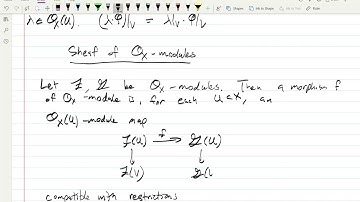 λ ∈ O_X(U). (λφ)|_V = λ|_V · φ|_V
Sheaf of O_X-modules
Let F, G be O_X-modules. Then a morphism f
of O_X-module is, for each U ⊂ X, an
O_X(U)-module map
F(U) →^f G(U)
↓ ↓
F(V) G(V
compatible with restrictions